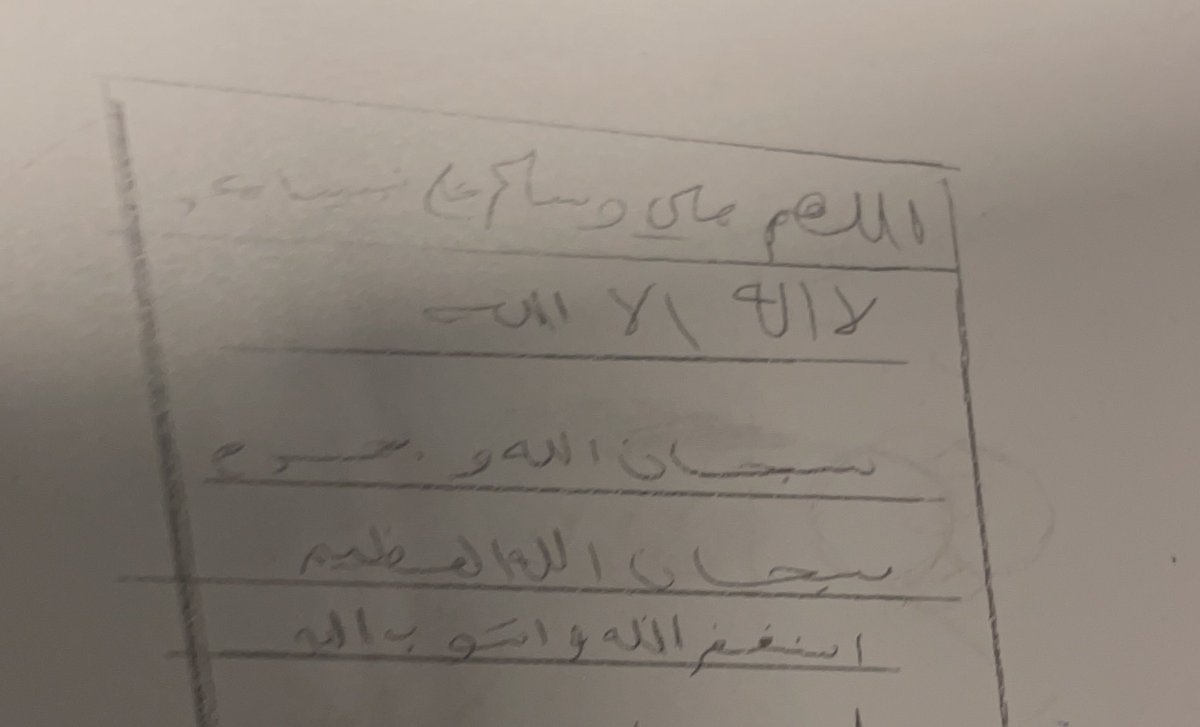 اللهم صلي وسلم على نبينا محمد
لا اله الا الله
سبحان الله و بحمده
سبحان الله العظيم
استغفر الله و اتوب اليه